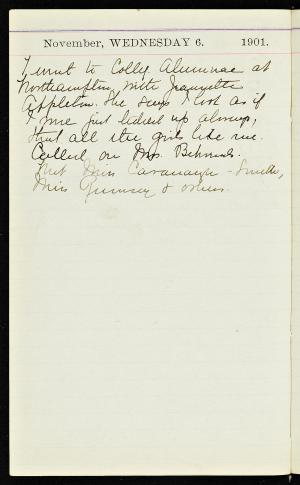 November, WEDNESDAY 6. 1901.
I went to Colleg. Alumnae at
Northampton with Jeannette
Appleton. She says I look as if
I were just
that all the girls like me.
Called on Mrs.
Met Miss Cavanaugh - Smith,
Miss & others.